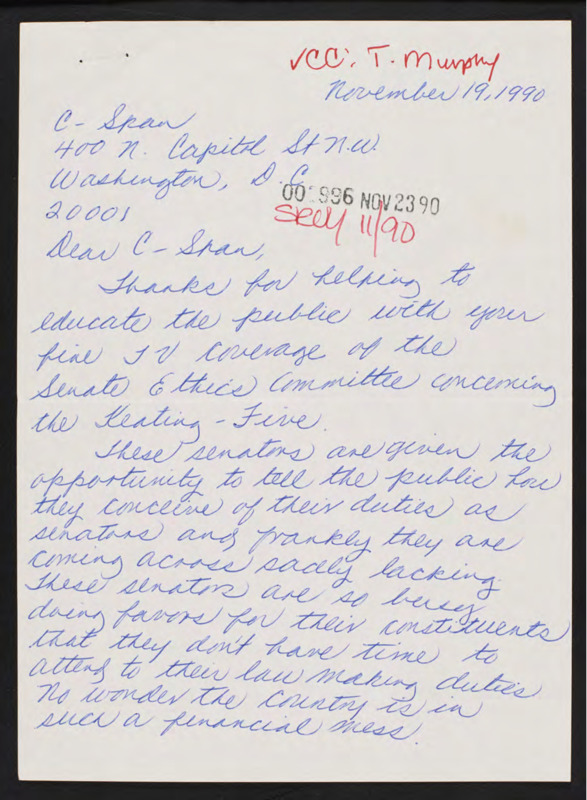 √CC: T. Murphy
November 19, 1990
C-Span
400 N. Capitol St N.W.
Washington, D.C.
20001
NOV 23 90
11/90
Dear C-Span,
Thanks for helping to
educate the public with your
fine TV coverage of the
Senate Ethics Committee concerning
the Keating-Five.
These senators are given the
opportunity to tell the public how
they conceive of their duties as
senators and frankly they are
coming across sadly lacking.
These senators are so busy
doing favors for their constituents
that they don't have time to
attend to their law making duties
No wonder the country is in
such a financial mess.